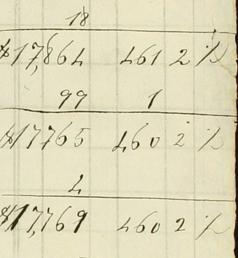 18
$17,864 461 2 %
99 1
$17765 460 2 %
4
$17,769 460 2 %